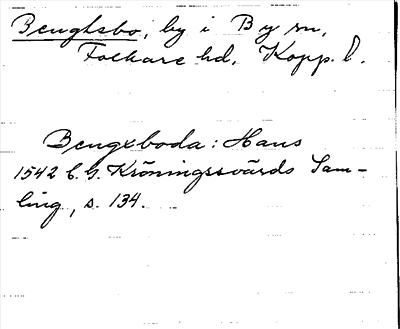 Bengtsbo, by i By sn,
Folkare hd, Kopp. l.
Bengxboda: Hans
1542 C. G. Kröningssvärds Sam-
ling, s. 134.